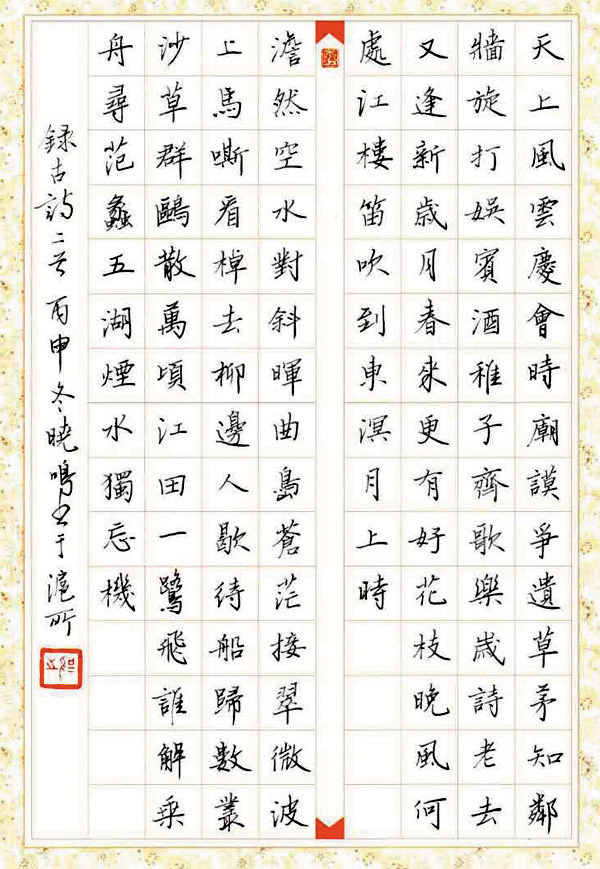 天上風雲慶會時廟謨爭遺草茅知鄰
牆旋打娛賓酒稚子齊歌樂歲詩老去
又逢新歲月春來更有好花枝晚風何
處江樓笛吹到東溟月上時
澹然空水對斜暉曲島蒼茫接翠微波
上馬嘶看棹去柳邊人歇待船歸數叢
沙草群鷗散萬頃江田一鷺飛誰解乘
舟尋范蠡五湖煙水獨忘機
録古詩二首 丙申冬曉鳴书于滬所